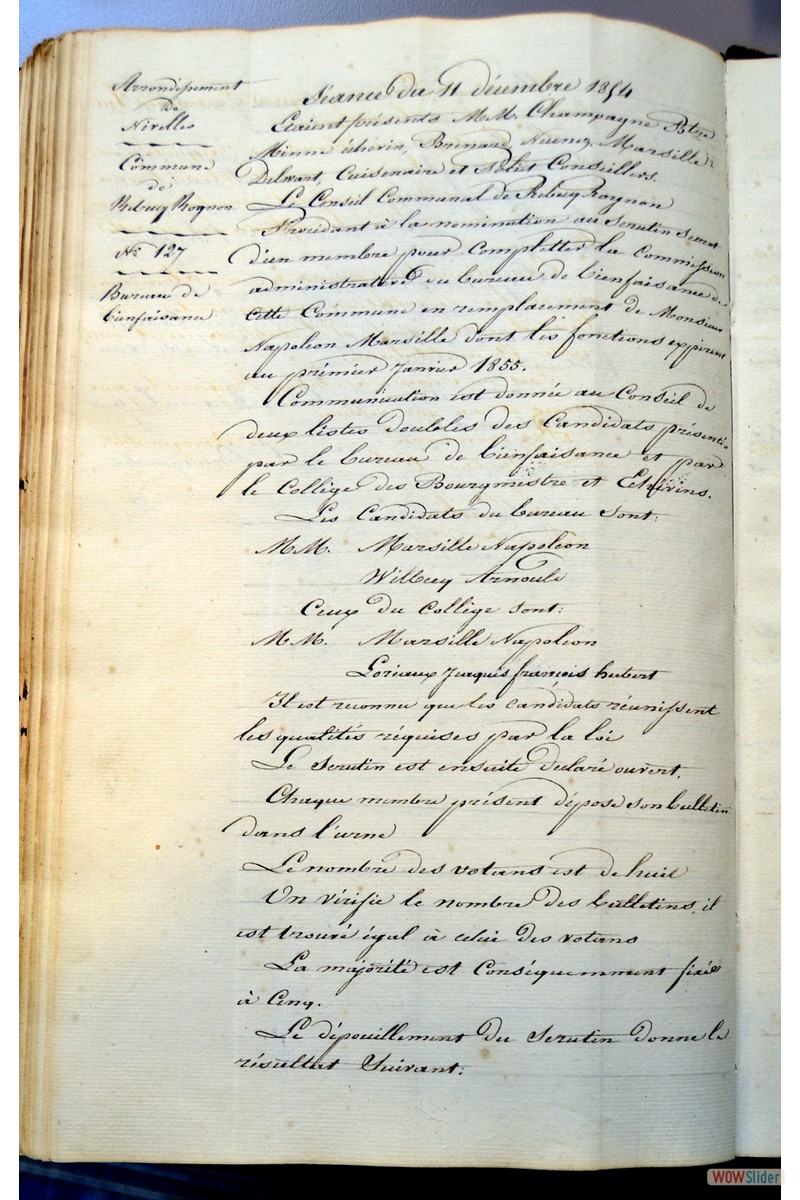 Arrondissement
de
Nivelles
Commune
de
Rebecq Rognon
N° 127
Bureau de
bienfaisance
Séance du 11 décembre 1854
Etaient présents M.M. Champagne
Minne échevin, Marsille
Delwart, Cuisenaire et Conseillers.
Le Conseil Communal de Rebecq Rognon
Procédant à la nomination au Scrutin Secret
d'un membre pour completter la Commission
administrative du bureau de bienfaisance de
cette Commune en remplacement de Monsieur
Napoléon Marsille dont les fonctions expirent
au prémier Janvier 1855.
Communication est donnée au Conseil de
deux listes doubles des Candidats présentés
par le bureau de bienfaisance et par
le Collège des Bourgmestre et Echevins.
Les Candidats du bureau sont:
M.M. Marsille Napoléon
Wilbecq Arnould
Ceux du Collège sont:
M.M. Marsille Napoléon
Loriaux Jacques françois hubert
Il est reconnu que les candidats réunissent
les qualités réquises par la loi
Le Scrutin est ensuite declaré ouvert.
Chaque membre présent dépose son bulletin
dans l'urne
Le nombre des votans est de huit
On vérifie le nombre des bulletins, il
est trouvé égal à celui des votans
La majorité est Conséquemment fixée
à Cinq.
Le dépouillement du Scrutin donne le
résultat Suivant:
WOWSlider